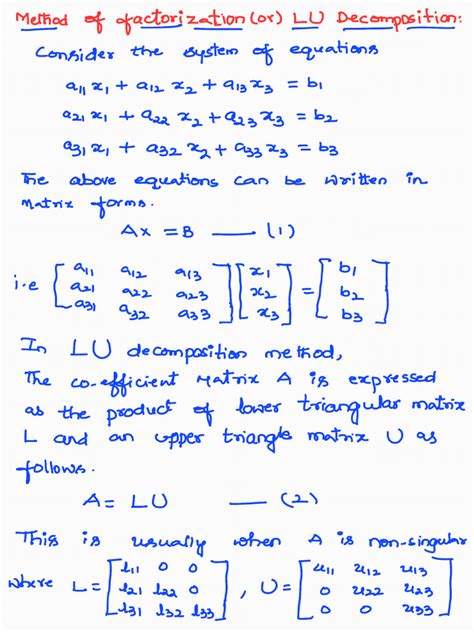 Method of factorization (or) LU Decomposition:
Consider the system of equations
a11 x1 + a12 x2 + a13 x3 = b1
a21 x1 + a22 x2 + a23 x3 = b2
a31 x1 + a32 x2 + a33 x3 = b3
The above equations can be written in
Matrix forms.
Ax = B —— (1)
i.e [a11 a12 a13; a21 a22 a23; a31 a32 a33] [x1; x2; x3] = [b1; b2; b3]
In LU decomposition method,
The co-efficient Matrix A is expressed
as the product of lower triangular matrix
L and an upper triangle matrix U as
follows.
A = LU —— (2)
This is usually when A is non-singular
where L = [l11 0 0; l21 l22 0; l31 l32 l33], U = [u11 u12 u13; 0 u22 u23; 0 0 u33]